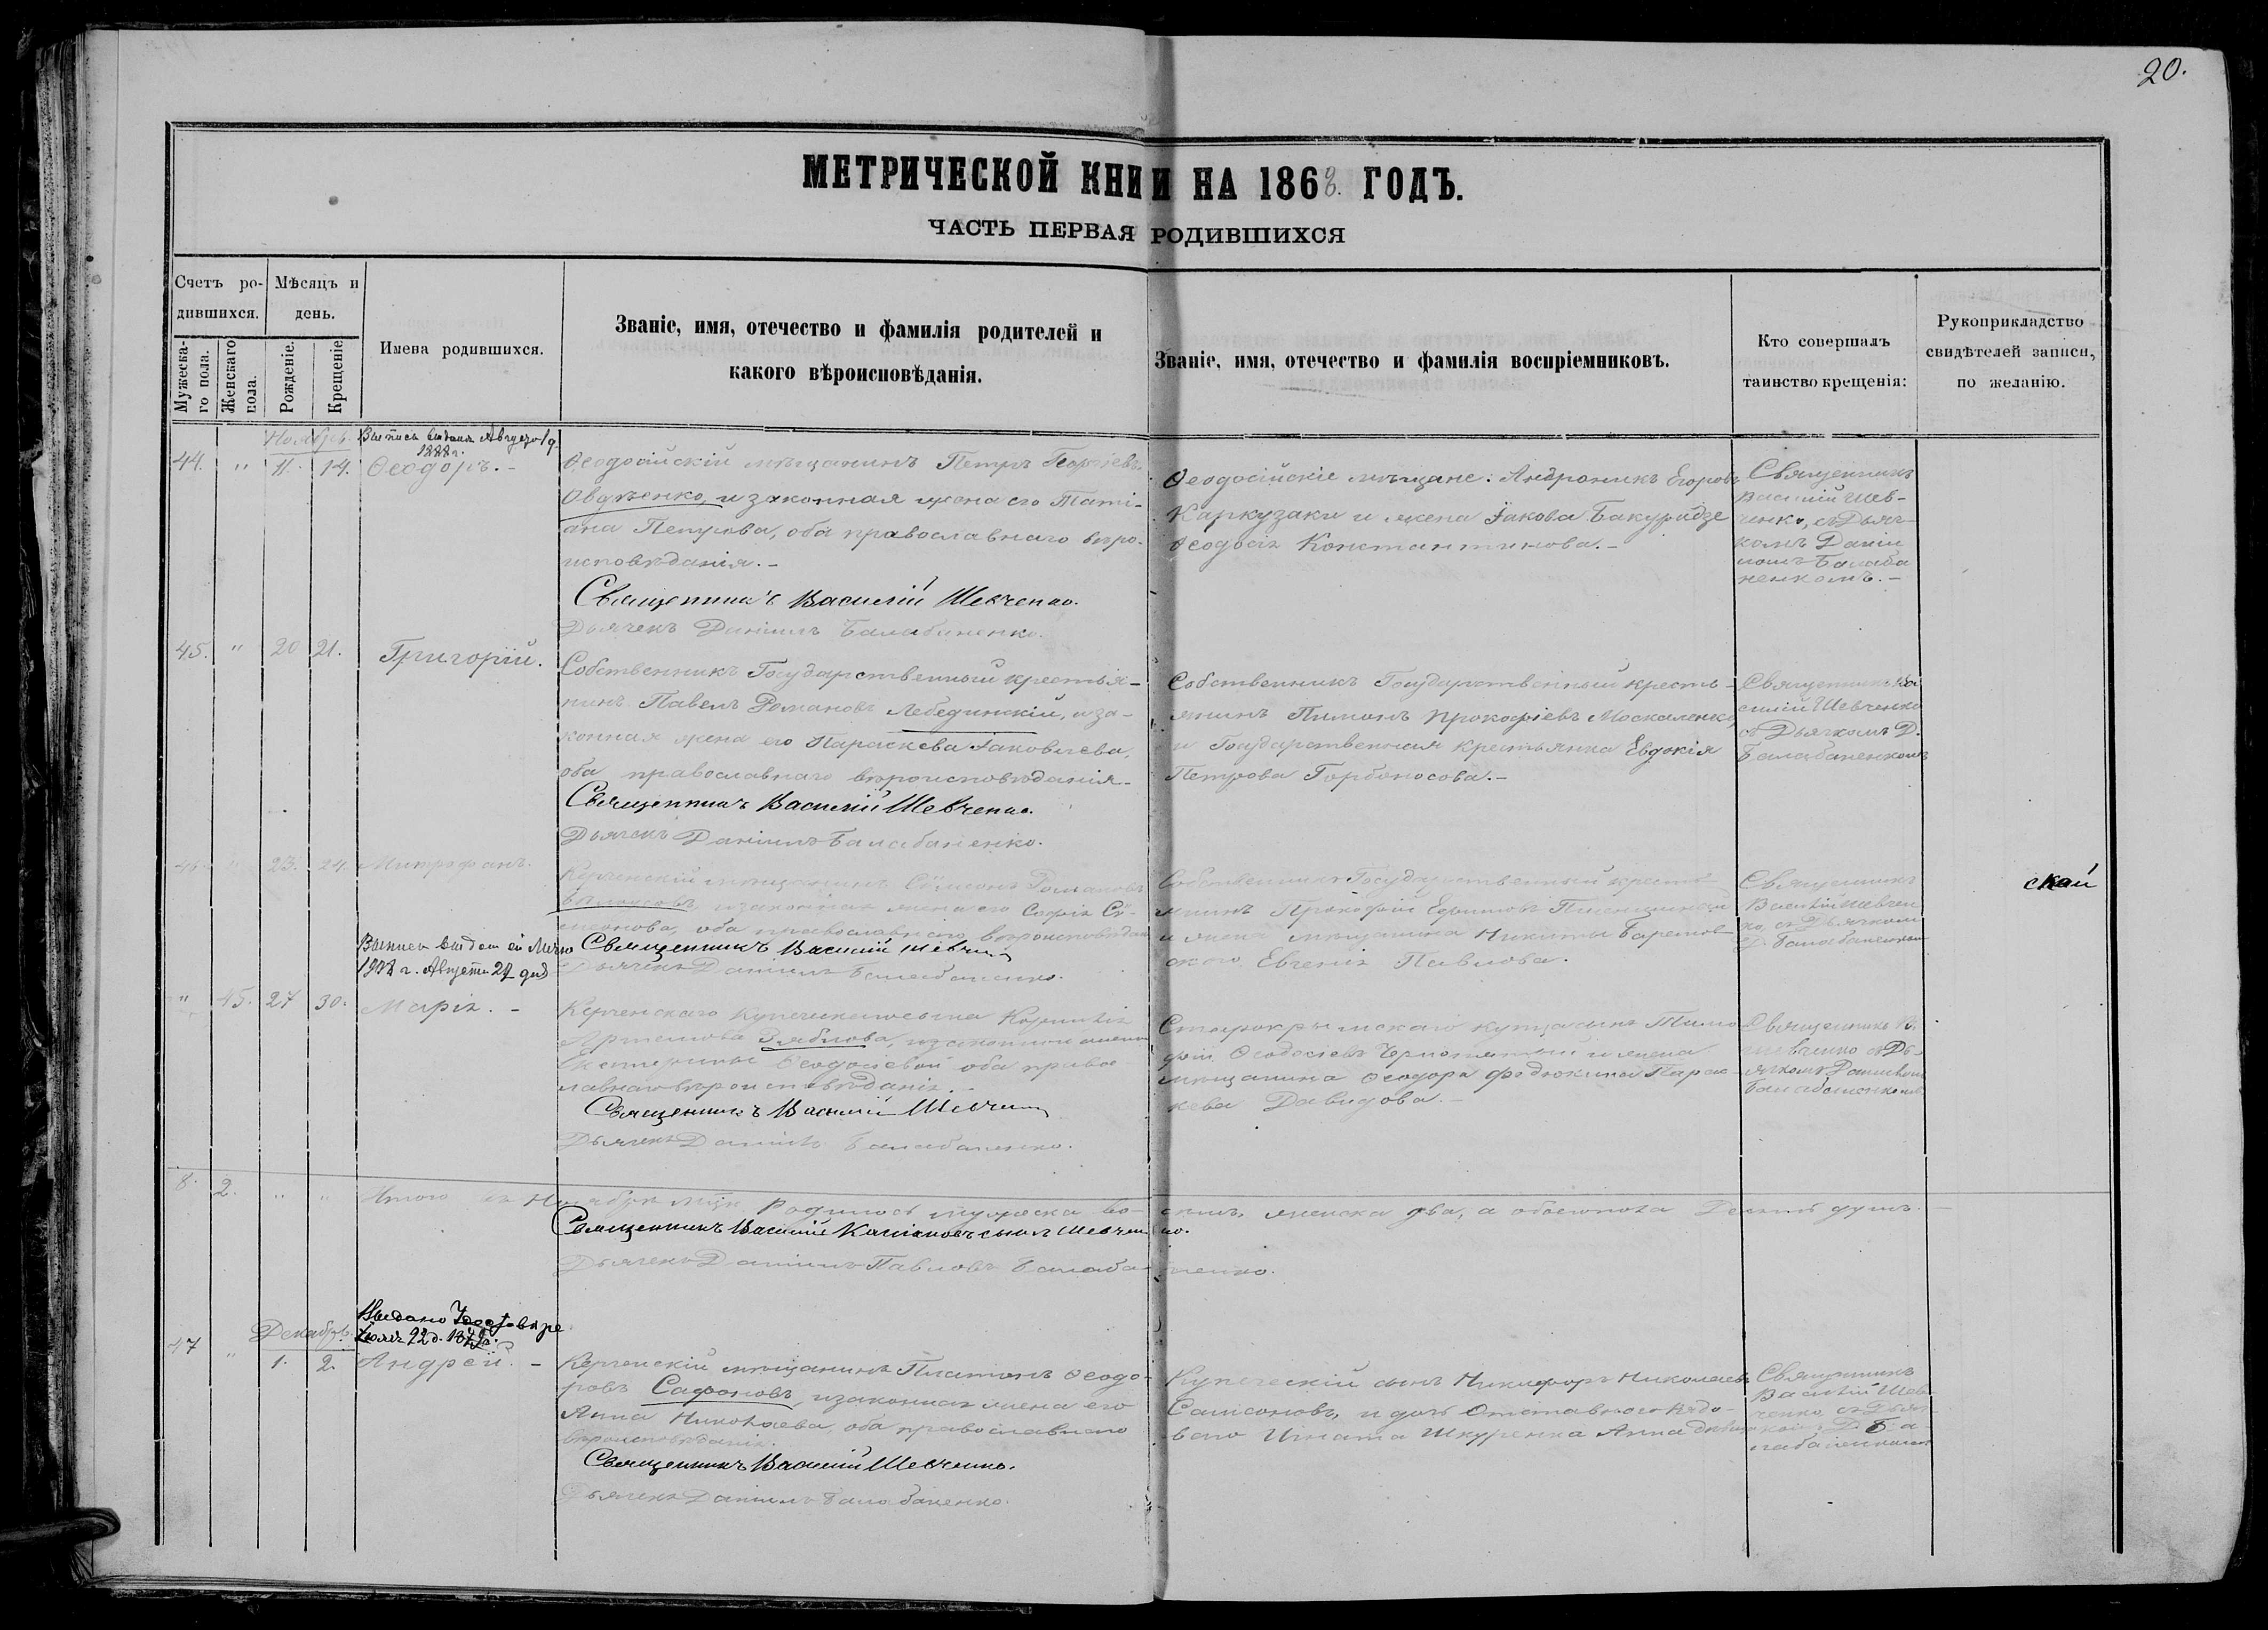 20.
МЕТРИЧЕСКОЙ КНИ И НА 1868. ГОДЪ.
ЧАСТЬ ПЕРВАЯ РОДИВШИХСЯ
Счетъ ро-
дившихся.
Мужеска-
го пола.
Женскаго
пола.
Мѣсяцъ и
день.
Рожденіе.
Крещеніе
Имена родившихся.
Званіе, имя, отечество и фамилія родителей и
какого вѣроисповѣданія.
Званіе, имя, отечество и фамилія воспріемниковъ.
Кто совершалъ
таинство крещенія:
Рукоприкладство
свидѣтелей записи,
по желанію.
Ноябрь.
1888 г.
44. " 11. 14. Ѳеодоръ. -
Ѳеодосійскій мѣщанинъ Петръ Георгіевъ
Овдѣенко, и законная жена его Таті-
ана Петрова, оба православнаго вѣро-
исповѣданія. -
Священникъ Василій Шевченко.
Дьячекъ Даніилъ Балабаненко.
Ѳеодосійскіе мѣщане: Андроникъ Егоровъ
Каркузаки и жена Іакова Бакуридзе
Ѳеодосія Константинова. -
Священникъ
Василій Шев-
ченко, съ Дьяч-
комъ Даніи
ломъ Балаба
ненкомъ. -
45. " 20 21. Григорій.
Собственникъ Государственный крестья-
нинъ Павелъ Романовъ Лебединскій, и за-
конная жена его Параскева Іаковлева,
оба православнаго вѣроисповѣданія -
Священникъ Василій Шевченко.
Дьячекъ Даніилъ Балабаненко.
Собственникъ Государственный кресть-
янинъ Пименъ Прокофіевъ Москаленко,
и Государственная крестьянка Евдокія
Петрова Горбоносова. -
Священникъ Ва
силій Шевченко
съ Дьячкомъ Д.
Балабаненкомъ
46 " 23. 24. Митрофанъ.
Керченскій мѣщанинъ Сѵмеонъ Романовъ
и законная жена его Софія Сѵ-
меонова, оба православнаго вѣроисповѣдан
Священникъ Василій Шевчен
Дьячекъ Даніилъ Балабаненко.
Собственникъ Государственный кресть-
янинъ Прокофій Ефимовъ
и жена мѣщанина Никиты
ского Евгенія Павлова.
Священникъ
Василій Шевчен
ко, съ Дьячком
Д. Балабаненком
ской
1888 г. Августа 27 дня
" 45. 27 30. Марія. -
Керченскаго купеческаго сына
Артемова Рябкова, и законной жены
Екатерины Ѳеодосіевой оба право
славнаго вѣроисповѣданія. -
Священникъ Василій Шевчен
Дьячекъ Даніилъ Балабаненко.
Старокрымскаго купца сынъ Тимо
фей Ѳеодосіевъ и жена
мѣщанина Ѳеодора Парас-
кева Давидова. -
Священникъ В.
Шевченко съ Дь-
ячкомъ Даніилом
Балабаненкомъ
8. 2. " " Итого въ Ноябрѣ м-цѣ родилось мужеска во-
семь, женска два, а обоего пола Десять душъ. -
Священникъ Василій Касіановъ сынъ Шевчен ко.
Дьячекъ Даніилъ Павловъ Балаба ненко.
Декабрь.
47 " 1. 2. Андрей. -
Керченскій мѣщанинъ Платонъ Ѳеодо-
ровъ Сафоновъ, и законная жена его
Анна Николаева, оба православнаго
вѣроисповѣданія.
Священникъ Василій Шевченко.
Дьячекъ Даніилъ Балабаненко.
Купеческій сынъ Никифоръ Николаевъ
Самсоновъ, и дочь Отставного рядо-
вого Игната Шкуренка Анна дѣвица
Священникъ
Василій Шев-
ченко, съ Дьяч-
комъ Д. Ба
лабаненкомъ